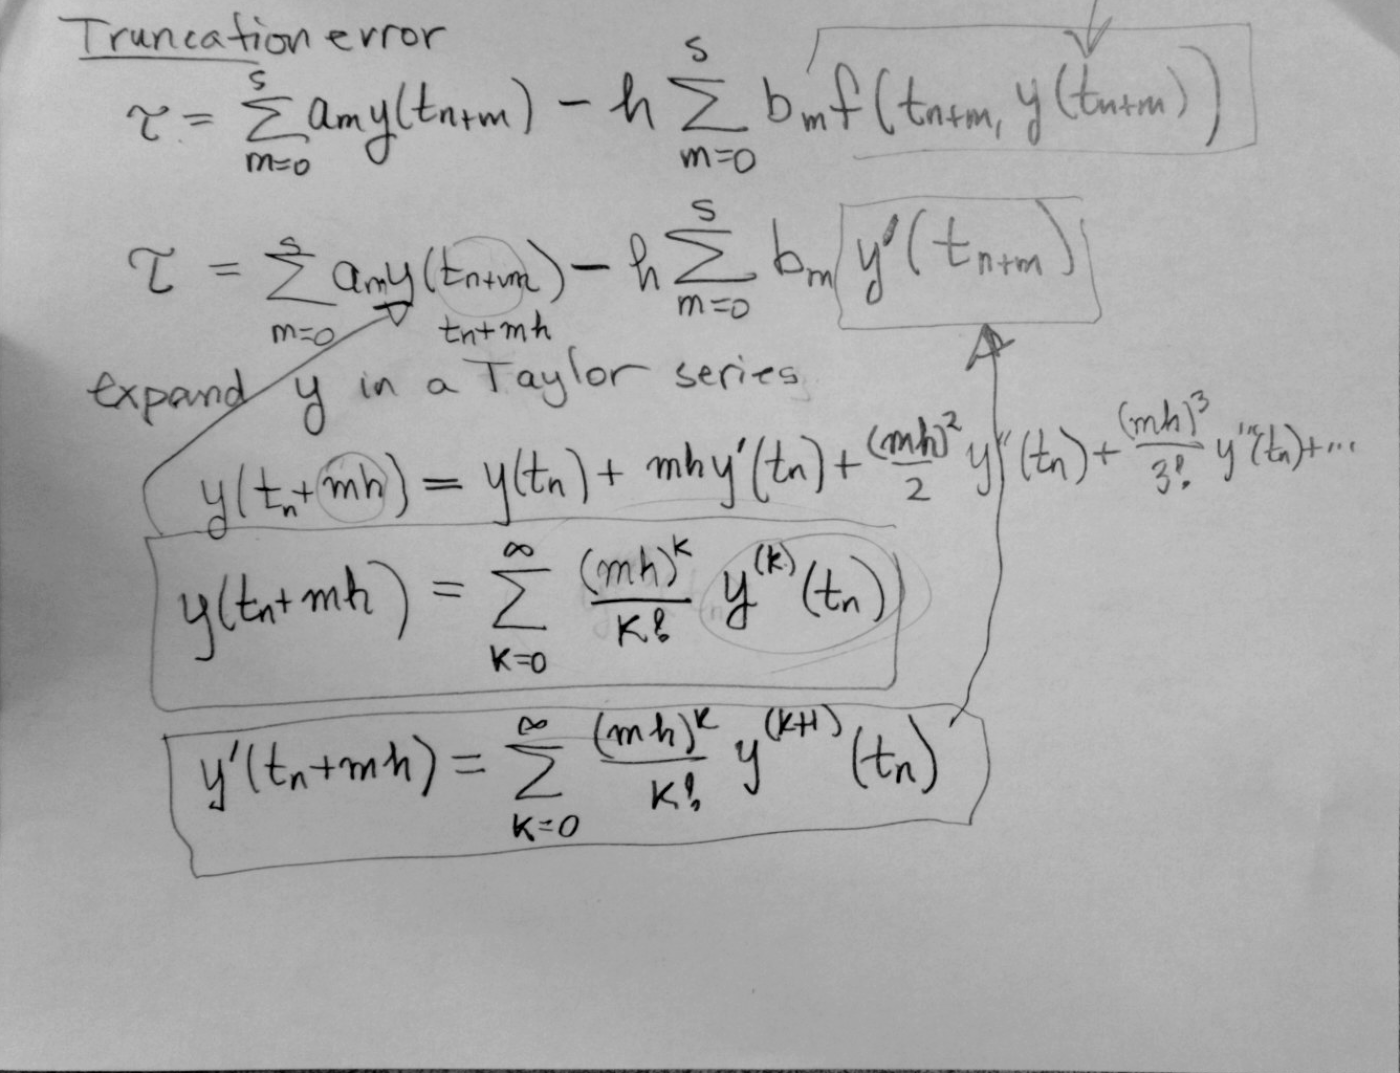 Truncation error
τ = ∑_{m=0}^{s} a_m y(t_{n+m}) − h ∑_{m=0}^{s} b_m f(t_{n+m}, y(t_{n+m}))
τ = ∑_{m=0}^{s} a_m y(t_{n+m}) − h ∑_{m=0}^{s} b_m y'(t_{n+m})
t_n + mh
expand y in a Taylor series
y(t_n + mh) = y(t_n) + mh y'(t_n) + (mh)^2/2 y''(t_n) + (mh)^3/3! y'''(t_n) + ...
y(t_n + mh) = ∑_{k=0}^{∞} (mh)^k/k! y^{(k)}(t_n)
y'(t_n + mh) = ∑_{k=0}^{∞} (mh)^k/k! y^{(k+1)}(t_n)